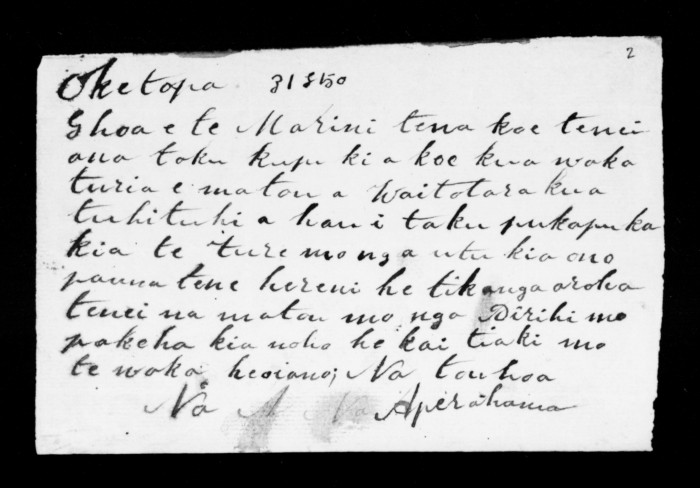 2
Oketopa 31 1850
Ehoa e te Marini tena koe tenei
ana toku kupu ki a koe kua waka
turia e matou a Waitotara kua
tuhituhi a hau i taku pukapuka
kia te ture mo nga utu kia ono
pauna tene hereni he tikanga aroha
tenei na matou mo nga Pirihi mo
pakeha kia noho he kai tiaki mo
te waka heoiano; Na tou hoa
Na Aperahama